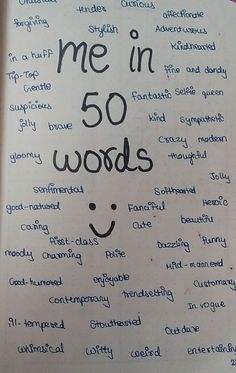 tender Curious
forgiving affectionate
Stylish Adventurous
me in
in a huff Kindhearted
Tip-Top fine and dandy
Gentle
fantastic Selfie queen
suspicious 50
jolly brave kind Sympathetic
Crazy modern
gloomy words thoughtful
Jolly
sentimental Softhearted
good-natured Fanciful Heroic
caring Cute beautiful
first-class Dazzling funny
moody Charming Polite
Mild-mannered
Good-humored enjoyable Customary
Contemporary trendsetting
In vogue
Ill-tempered Stouthearted
Outdare
whimsical Witty weird entertaining